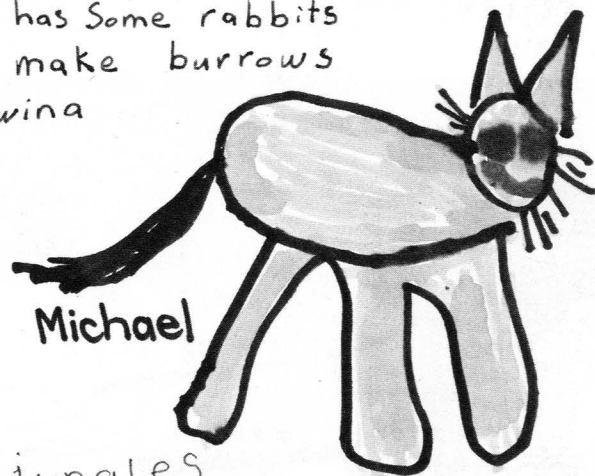 has Some rabbits
make burrows
wina
Michael
jungles